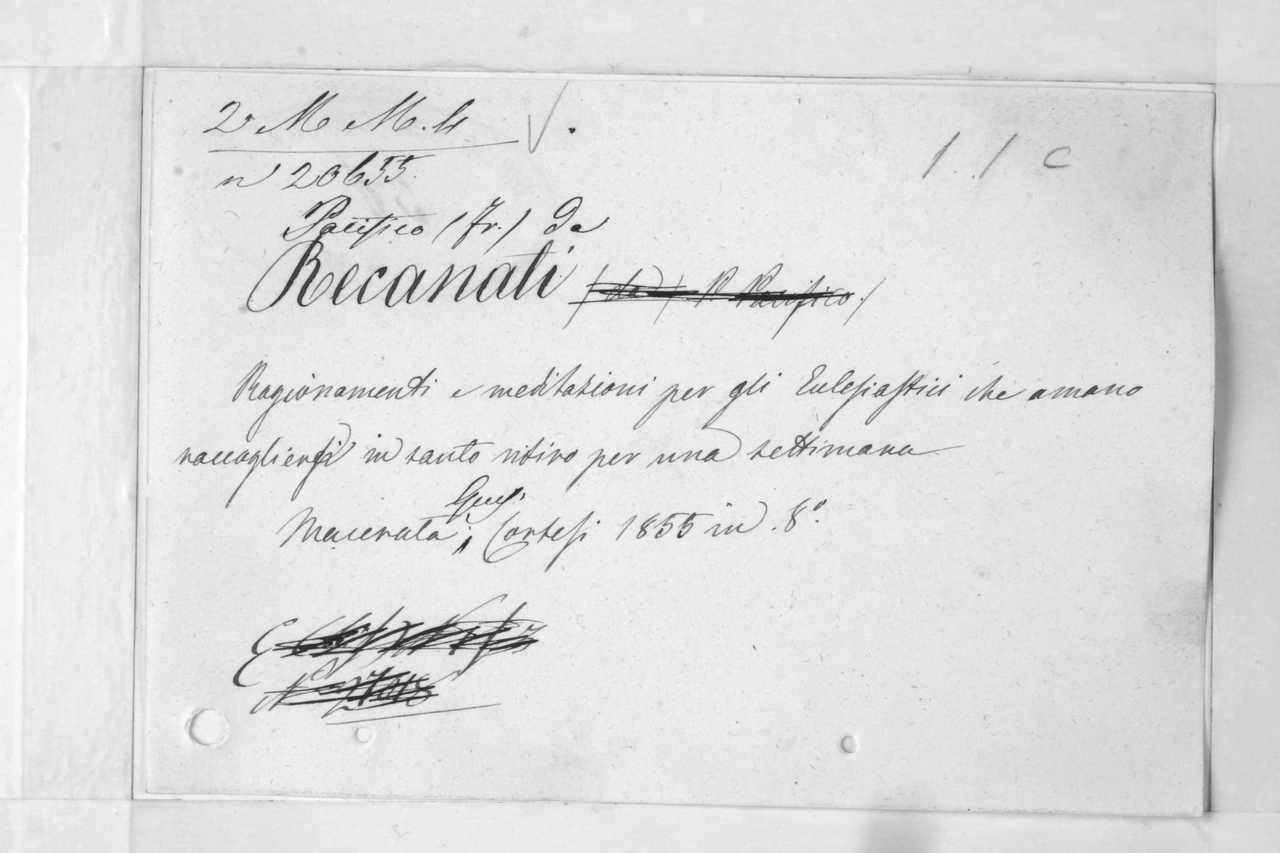 2 M M. 4
1. 1 C
n 20655.
Pacifico (Fr.) da
Recanati (da) P. Pacifico.)
Ragionamenti e meditazioni per gli Eclesiastici che amano
raccogliersi in santo ritiro per una settimana
Macerata Gius. Cortesi 1855 in 8°.